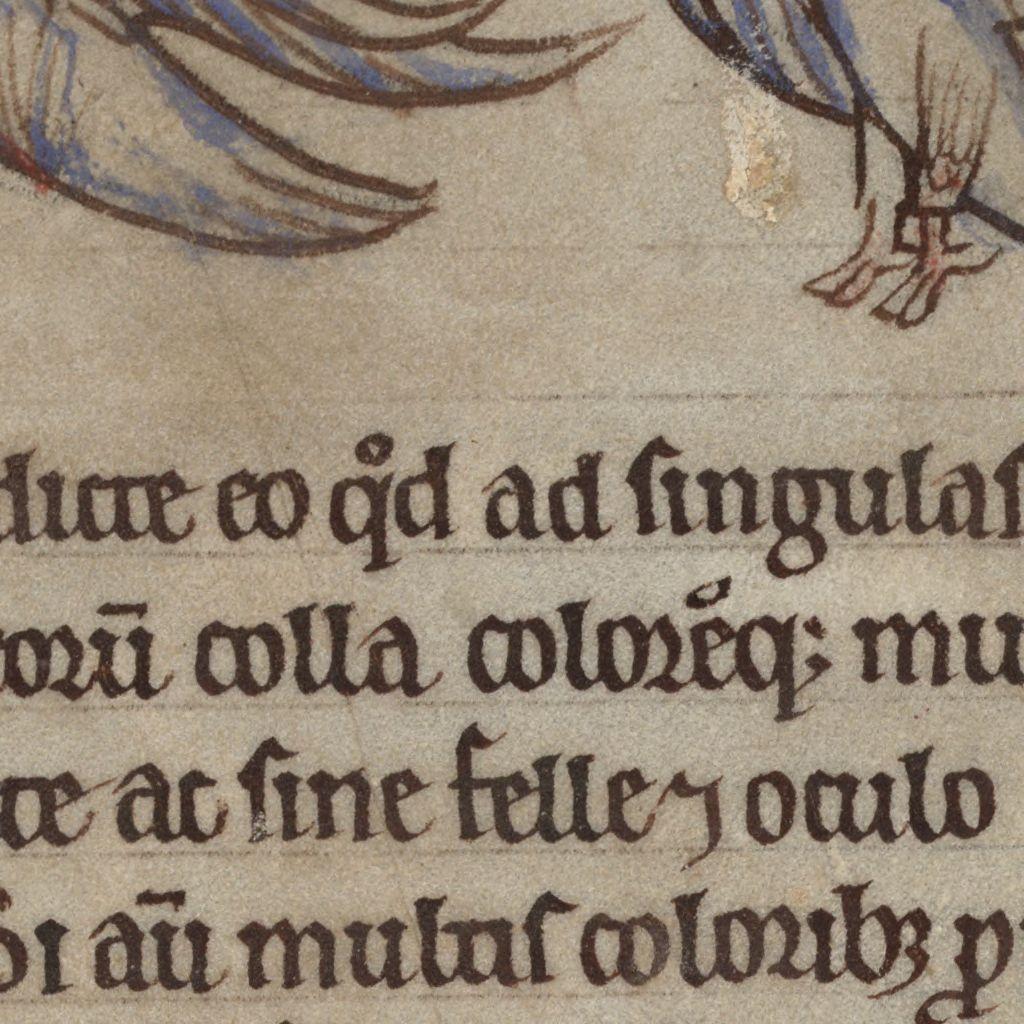 dicte eo qͦd ad singulas
corū colla coloreͦq; mu
te ac sine felle ⁊ oculo
aū multis coloribꝫ p